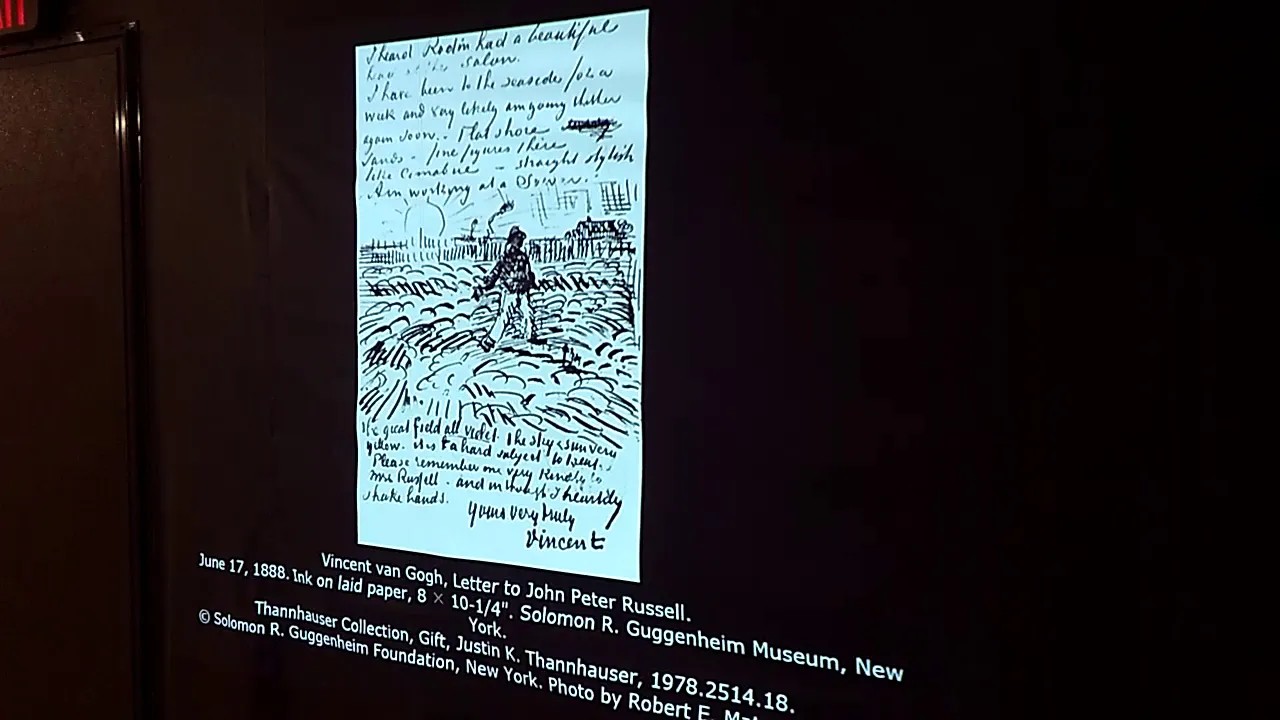 I heard Rodin had a beautiful
salon.
I have been to the seaside for a
week and very likely am going thither
again soon. - Flat shore
sands - fine figures there
like Cimabue - straight stylish
Am working at a Sower.
the great field all violet the sky & sun very
yellow. it is a hard subject to treat.
Please remember me very kindly to
Mrs Russell - and in thought I heartily
shake hands.
yours very truly
Vincent
Vincent van Gogh, Letter to John Peter Russell.
June 17, 1888. Ink on laid paper, 8 × 10-1/4". Solomon R. Guggenheim Museum, New
York.
Thannhauser Collection, Gift, Justin K. Thannhauser, 1978.2514.18.
© Solomon R. Guggenheim Foundation, New York. Photo by Robert E.